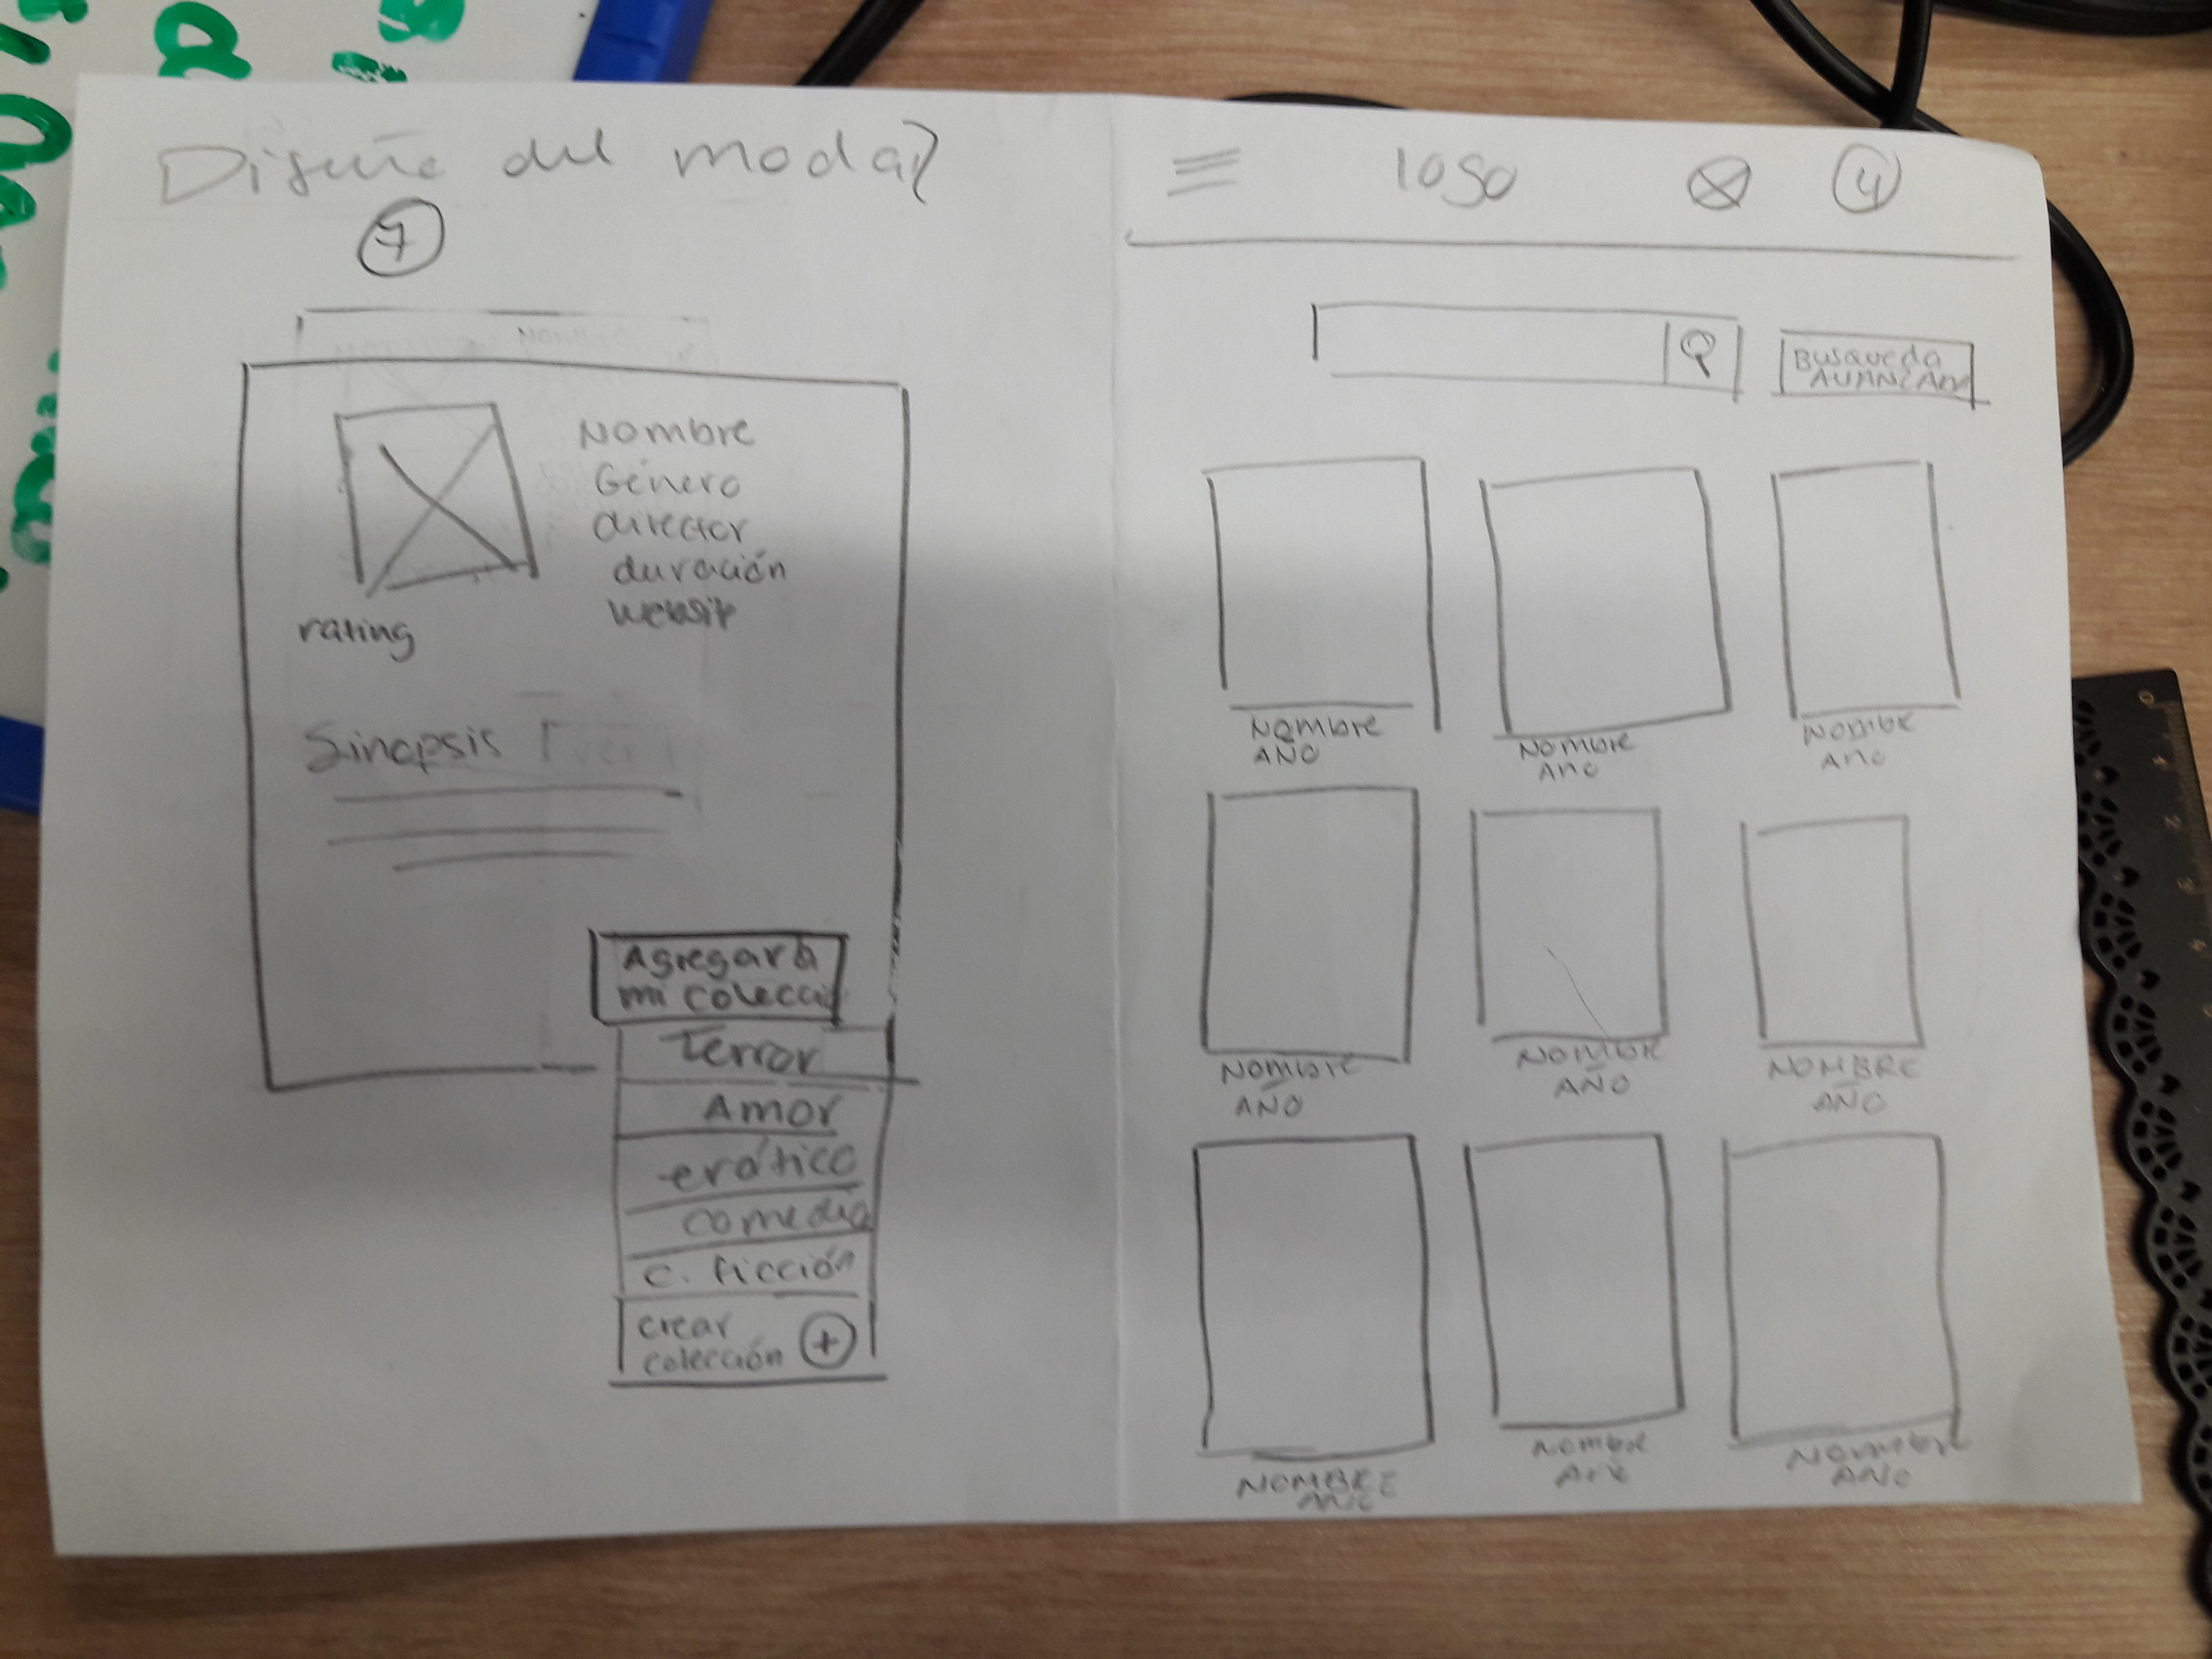 Diseño del modal
7
Nombre
Género
director
duración
rating
Sinopsis
Agregar a
mi colecció
Terror
Amor
erótico
comedia
c. ficción
crear
colección +
logo
4
Busqueda
Nombre
AÑO
Nombre
Año
Nombre
Año
Nombre
AÑO
Nombre
AÑO
NOMBRE
AÑO
NOMBRE
Nombre
Nombre
AÑO